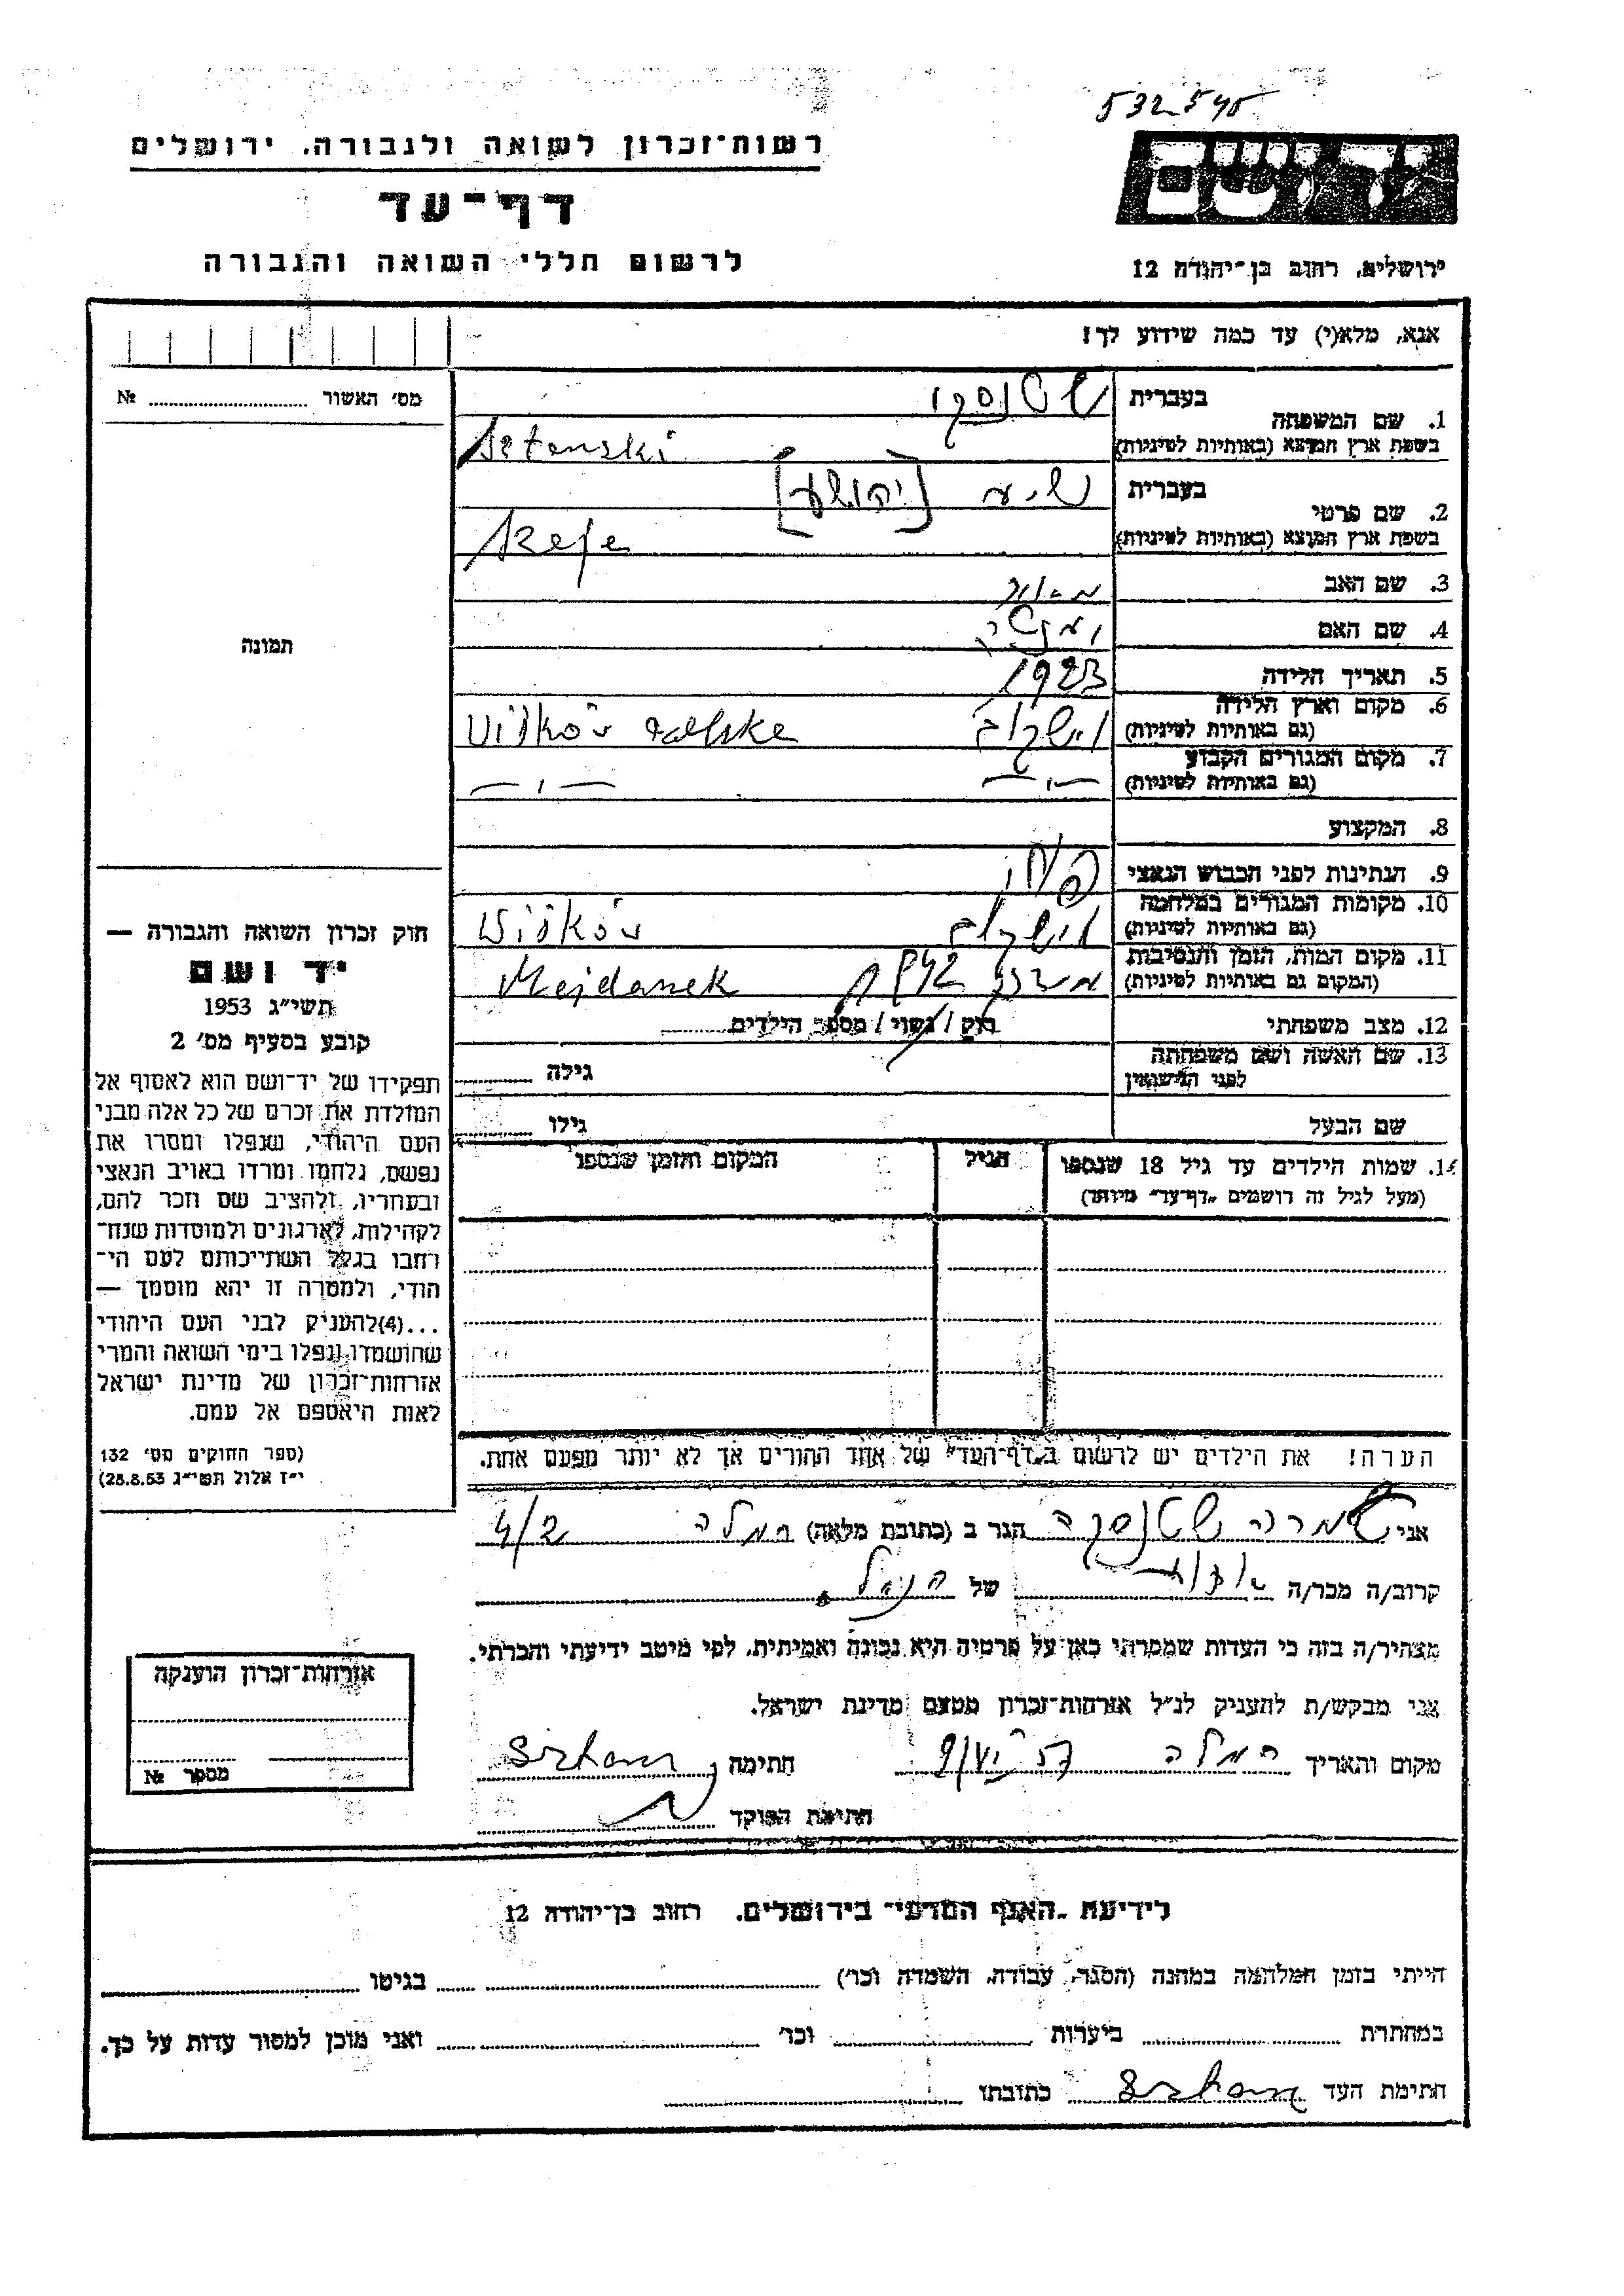 532545
רשות־זכרון לשואה ולגבורה, ירושלים
דף־עד
לרשום חללי השואה והגבורה
יד ושם
ירושלים, רחוב בן־יהודה 12
אנא, מלא(י) עד כמה שידוע לך!
מס׳ האשור № 
תמונה
1. שם המשפחה
בעברית שטנסקי
בשפת ארץ המוצא (באותיות לטיניות) Sztenski
2. שם פרטי
בעברית שיע [יהושע]
בשפת ארץ המוצא (באותיות לטיניות)
3. שם האב מאיר
4. שם האם
5. תאריך הלידה 1923
6. מקום וארץ הלידה
(גם באותיות לטיניות)
7. מקום המגורים הקבוע
(גם באותיות לטיניות) — ״ — — ״ —
8. המקצוע
9. הנתינות לפני הכבוש הנאצי
10. מקומות המגורים במלחמה
(גם באותיות לטיניות)
11. מקום המות, הזמן והנסיבות
(המקום גם באותיות לטיניות) Majdanek
12. מצב משפחתי רוק / נשוי / מספר הילדים
13. שם האשה ושם משפחתה
לפני הנישואין גילה
שם הבעל גילו
14. שמות הילדים עד גיל 18 שנספו הגיל המקום והזמן שנספו
(מעל לגיל זה רושמים „דף־עד״ מיוחד)
הערה! את הילדים יש לרשום ב„דף־העד״ של אחד ההורים אך לא יותר מפעם אחת.
חוק זכרון השואה והגבורה —
יד ושם
תשי״ג 1953
קובע בסעיף מס׳ 2
תפקידו של יד־ושם הוא לאסוף אל
המולדת את זכרם של כל אלה מבני
העם היהודי, שנפלו ומסרו את
נפשם, נלחמו ומרדו באויב הנאצי
ובעוזריו, ולהציב שם וזכר להם,
לקהילות, לארגונים ולמוסדות שנח־
רבו בגלל השתייכותם לעם הי־
הודי, ולמטרה זו יהא מוסמך —
...(4)להעניק לבני העם היהודי
שהושמדו ונפלו בימי השואה והמרי
אזרחות־זכרון של מדינת ישראל
לאות היאספם אל עמם.
(ספר החוקים מס׳ 132
י״ז אלול תשי״ג 28.8.53)
אני שטנסקי הגר ב (כתובת מלאה) רמלה
קרוב/ה מכר/ה של הנ״ל.
מצהיר/ה בזה כי העדות שמסרתי כאן על פרטיה היא נכונה ואמיתית, לפי מיטב ידיעתי והכרתי.
אני מבקש/ת להעניק לנ״ל אזרחות־זכרון מטעם מדינת ישראל.
מקום ותאריך רמלה חתימה
חתימת הפוקד
אזרחות־זכרון הוענקה
מספר №
לידיעת „האגף המדעי״ בירושלים, רחוב בן־יהודה 12
הייתי בזמן המלחמה במחנה (הסגר, עבודה, השמדה וכו׳) בגיטו
במחתרת ביערות וכו׳ ואני מוכן למסור עדות על כך.
חתימת העד כתובתו